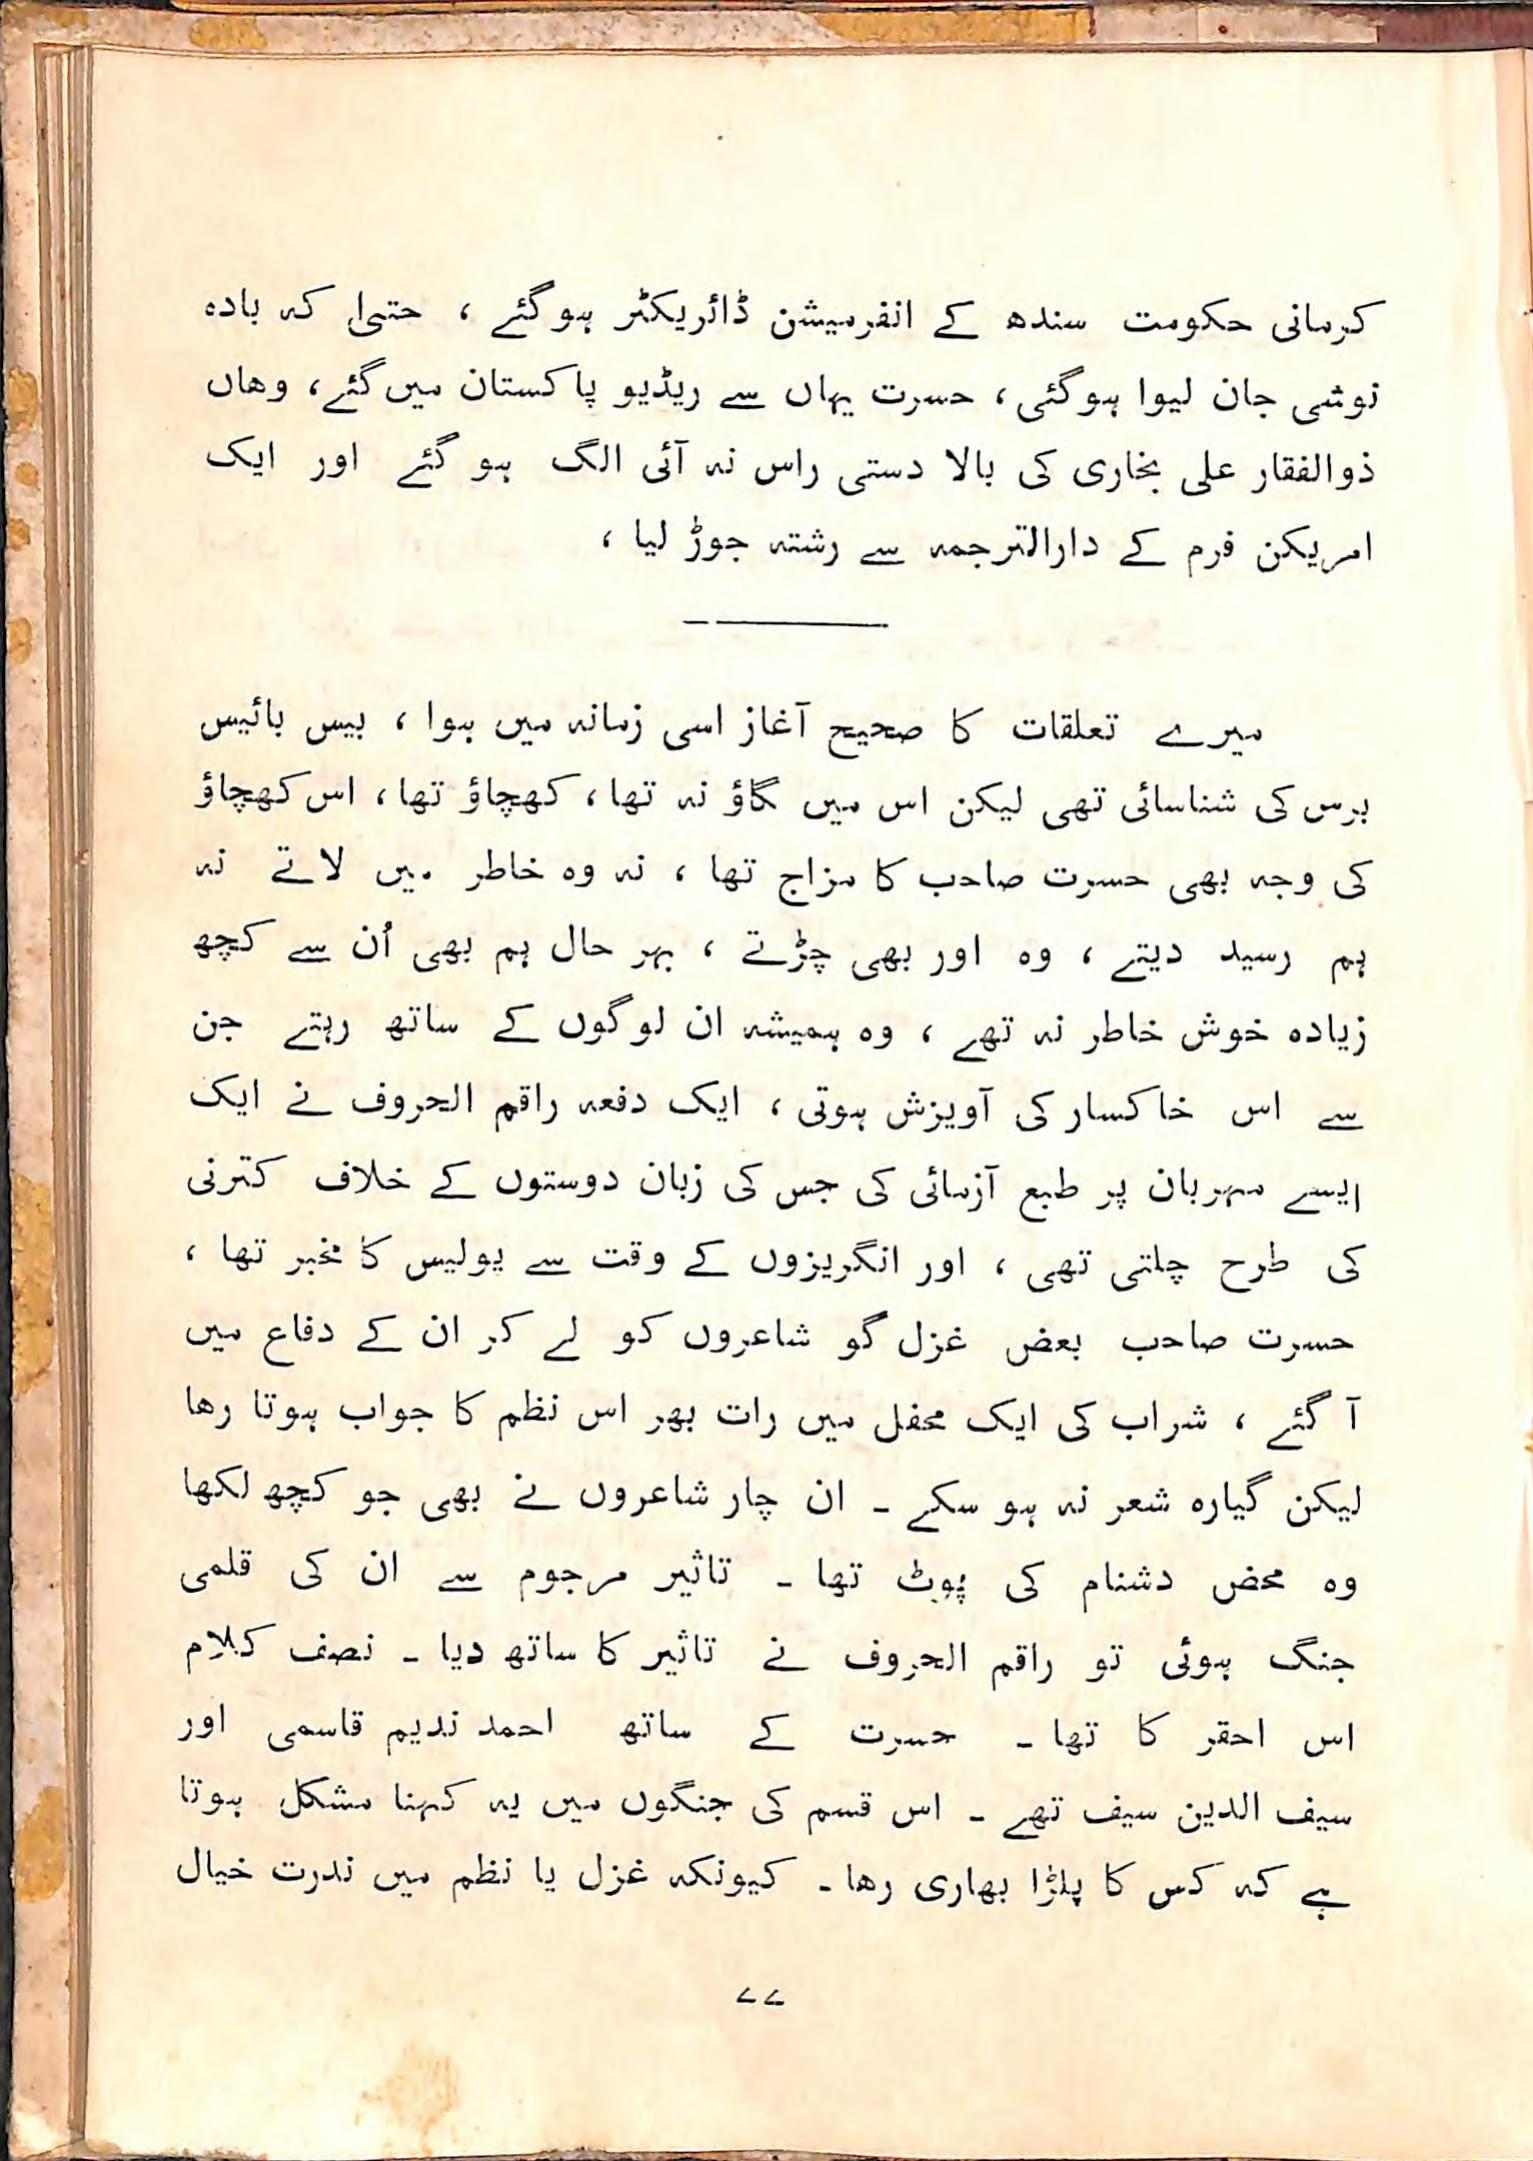 کرمانی حکومت سندھ کے انفرمیشن ڈائریکٹر ہوگئے ، حتیٰ کہ بادہ
نوشی جان لیوا ہوگئی ، حسرت یہاں سے ریڈیو پاکستان میں گئے ، وھاں
ذوالفقار علی بخاری کی بالا دستی راس نہ آئی الگ ہو گئے اور ایک
امریکن فرم کے دارالترجمہ سے رشتہ جوڑ لیا ،
میرے تعلقات کا صحیح آغاز اسی زمانہ میں ہوا ، بیس بائیس
برس کی شناسائی تھی لیکن اس میں لگاؤ نہ تھا ، کھچاؤ تھا ، اس کھچاؤ
کی وجہ بھی حسرت صاحب کا مزاج تھا ، نہ وہ خاطر میں لاتے نہ
ہم رسید دیتے ، وہ اور بھی چڑتے ، بہر حال ہم بھی اُن سے کچھ
زیادہ خوش خاطر نہ تھے ، وہ ہمیشہ ان لوگوں کے ساتھ رہتے جن
سے اس خاکسار کی آویزش ہوتی ، ایک دفعہ راقم الحروف نے ایک
ایسے مہربان پر طبع آزمائی کی جس کی زبان دوستوں کے خلاف کترنی
کی طرح چلتی تھی ، اور انگریزوں کے وقت سے پولیس کا مخبر تھا ،
حسرت صاحب بعض غزل گو شاعروں کو لے کر ان کے دفاع میں
آ گئے ، شراب کی ایک محفل میں رات بھر اس نظم کا جواب ہوتا رھا
لیکن گیارہ شعر نہ ہو سکے ۔ ان چار شاعروں نے بھی جو کچھ لکھا
وہ محض دشنام کی پوٹ تھا ۔ تاثیر مرحوم سے ان کی قلمی
جنگ ہوئی تو راقم الحروف نے تاثیر کا ساتھ دیا ۔ نصف کلام
اس احقر کا تھا ۔ حسرت کے ساتھ احمد ندیم قاسمی اور
سیف الدین سیف تھے ۔ اس قسم کی جنگوں میں یہ کہنا مشکل ہوتا
ہے کہ کس کا پلڑا بھاری رھا ۔ کیونکہ غزل یا نظم میں ندرت خیال
۷۷